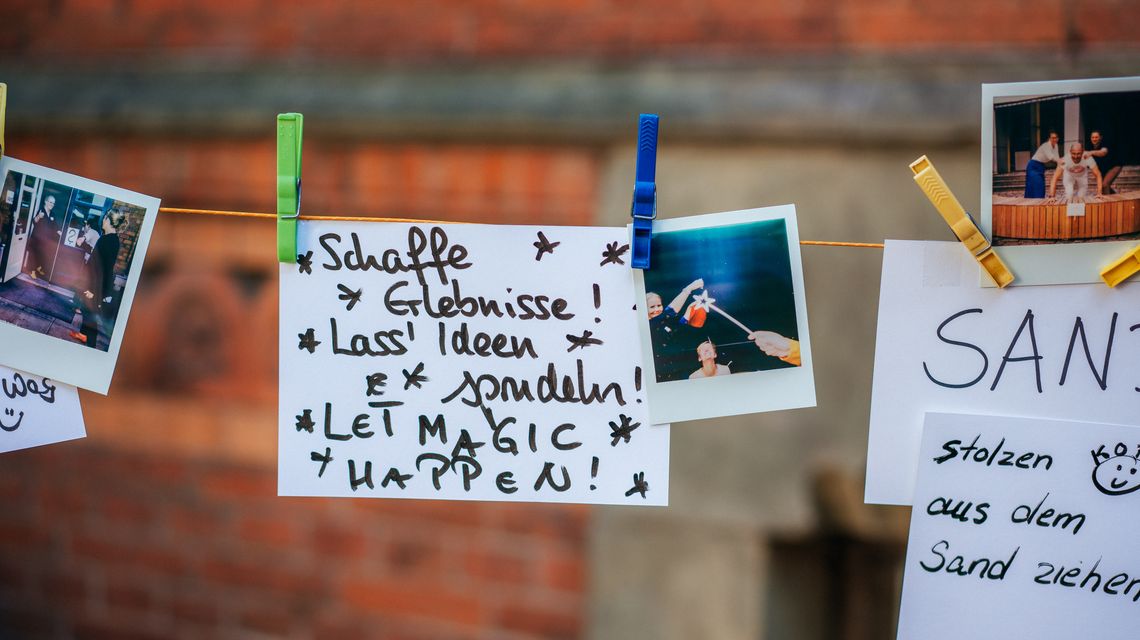 Was
Schaffe
Erlebnisse!
Lass' Ideen
sprudeln!
LET MAGIC
HAPPEN!
SAN
stolzen
aus dem
Sand ziehen